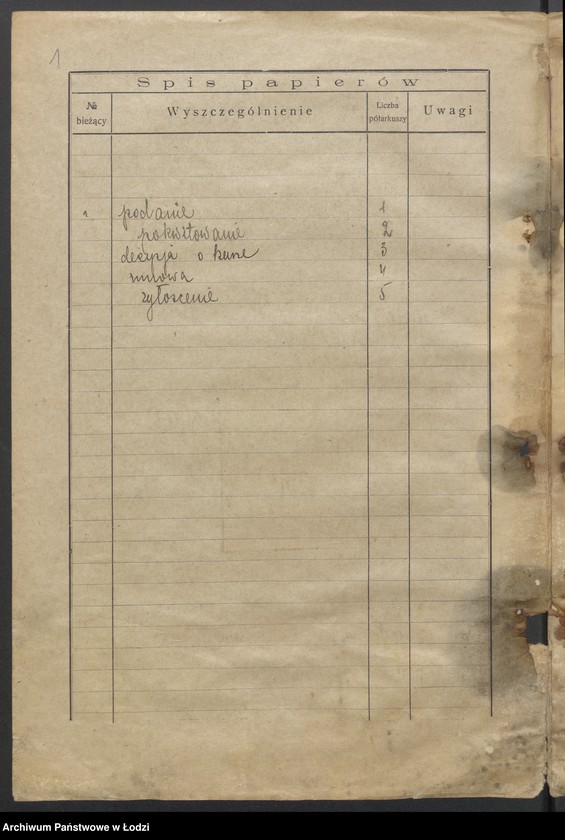 1
Spis papierów
№ bieżący Wyszczególnienie Liczba półarkuszy Uwagi
podanie 1
pokwitowanie 2
decyzja o 3
umowa 4
zgłoszenie 5
Archiwum Państwowe w Łodzi